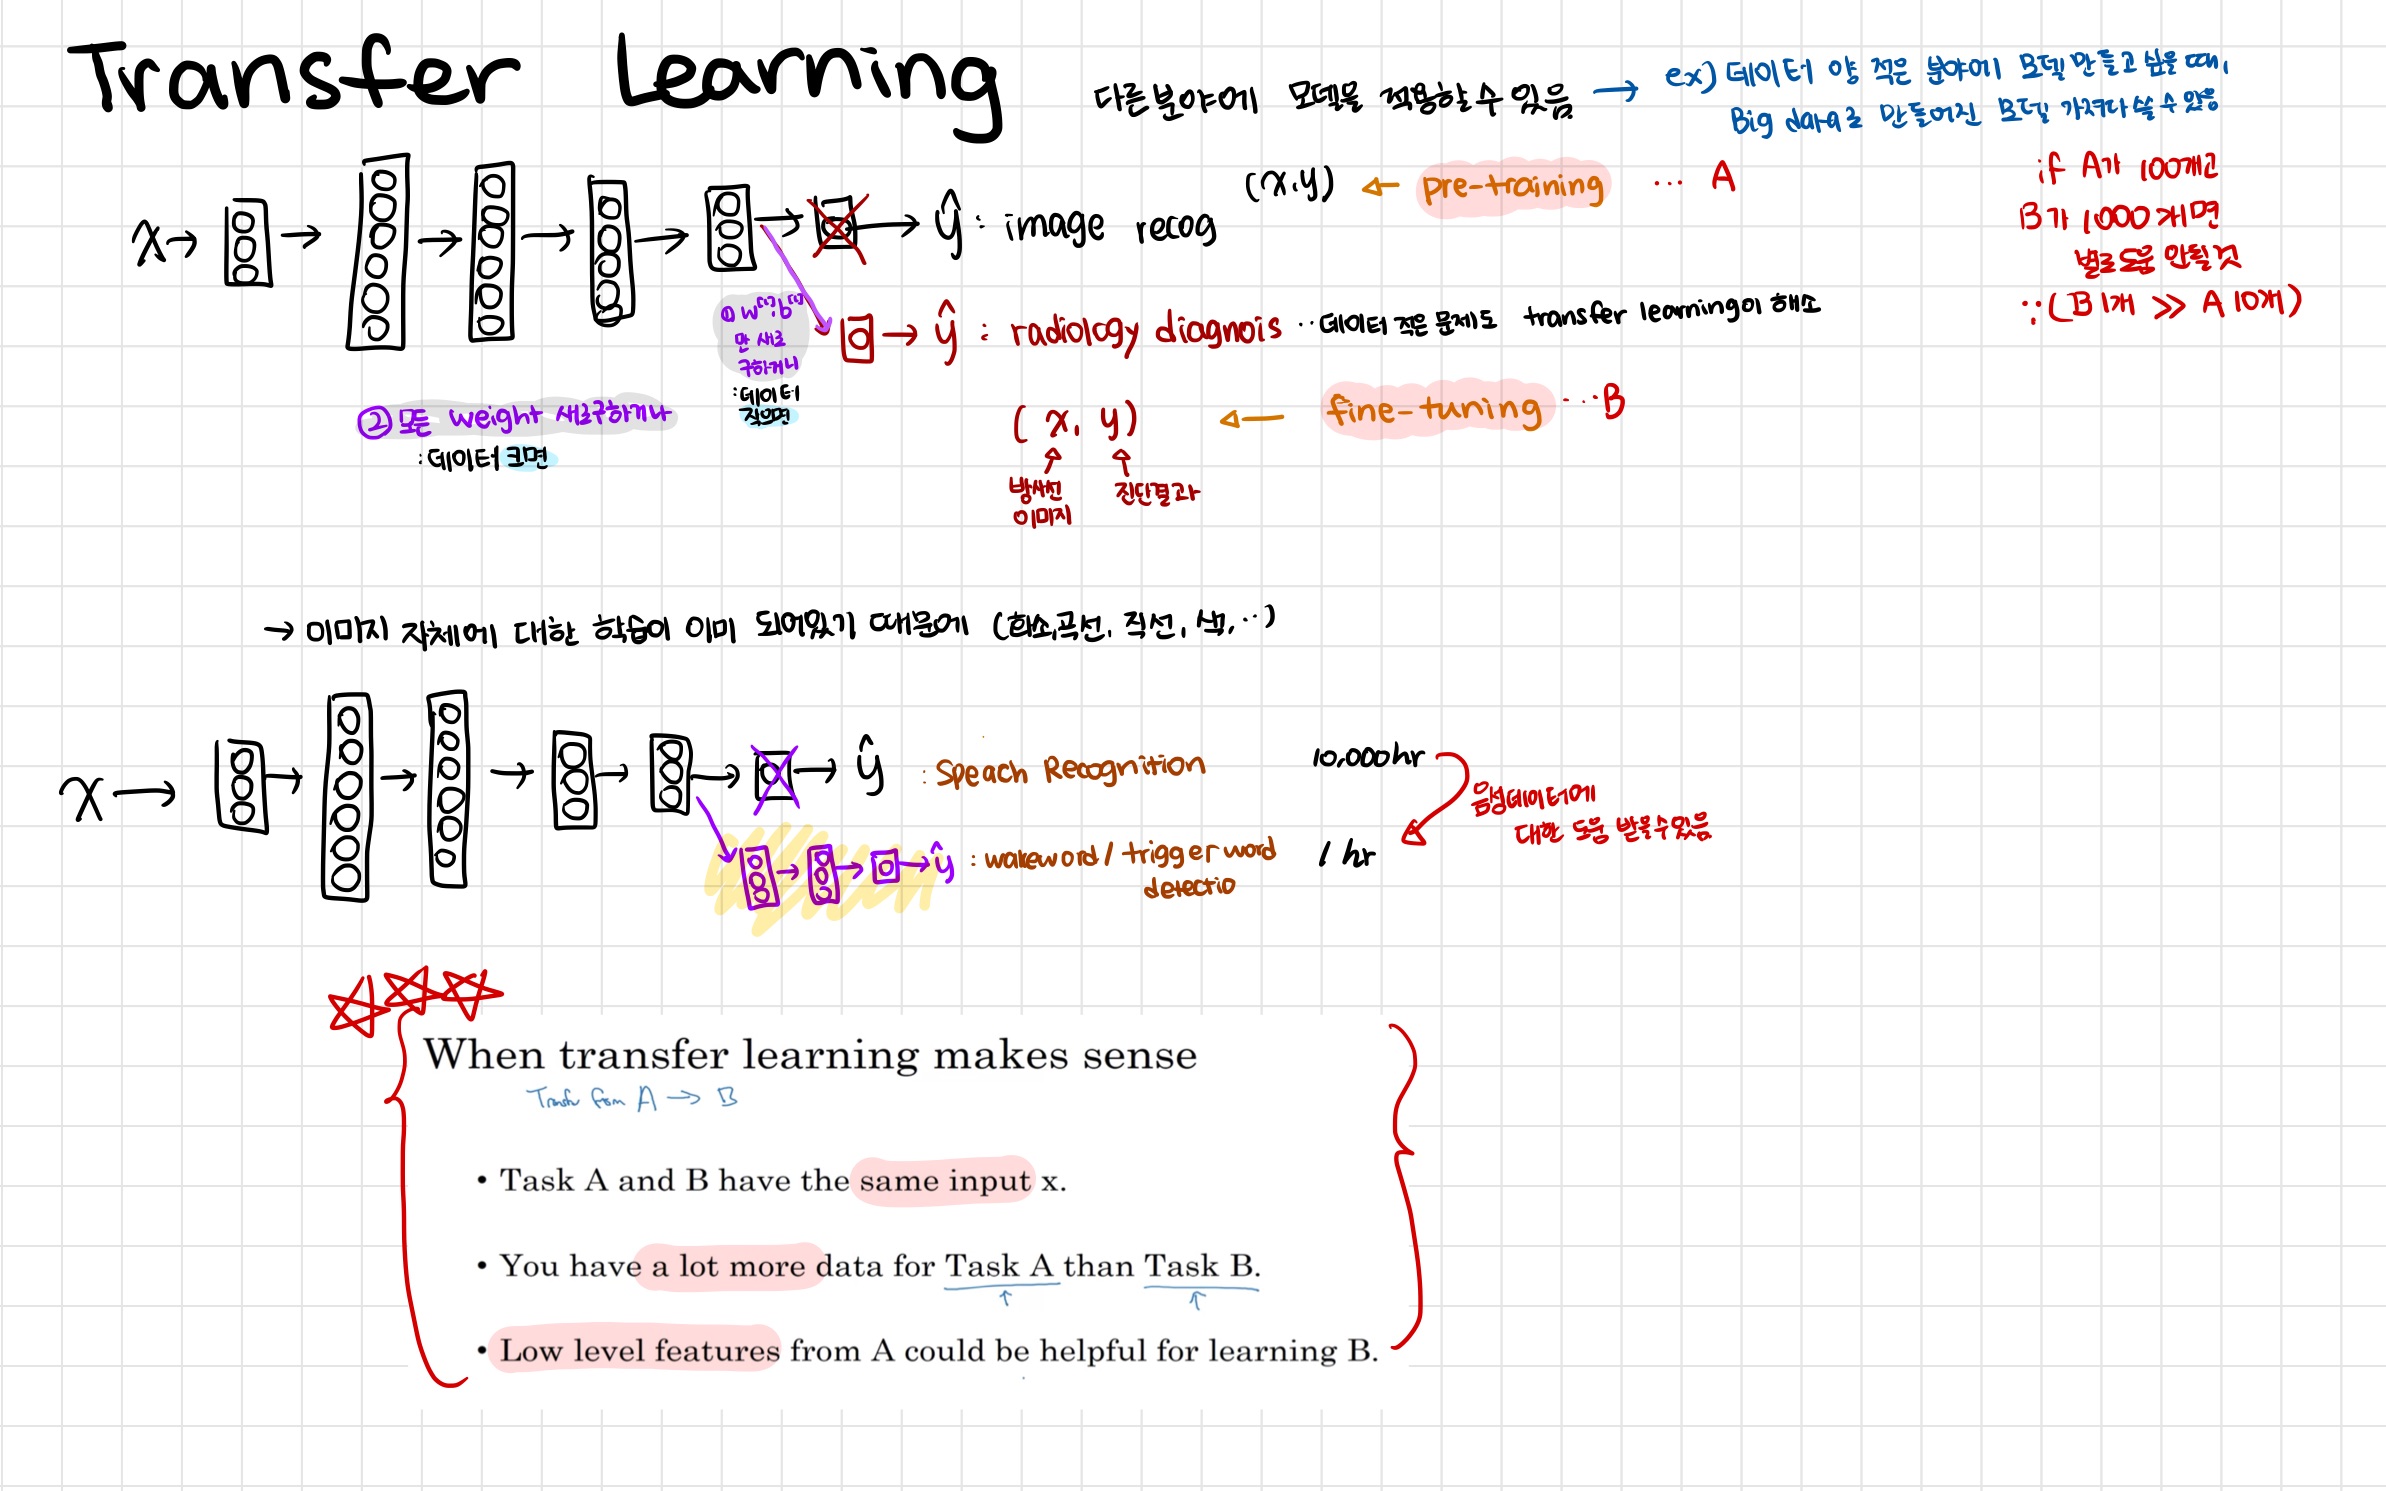 Transfer Learning
다른분야에 모델을 적용할 수 있음 → ex) 데이터 양 적은 분야에 모델 만들고 싶을 때,
Big dara로 만들어진 모델 가져다 쓸 수 있음
x → → → → → → → ŷ : image recog
(x,y) ← pre-training ... A
if A가 100개고
B가 1000개면
별로 도움 안될것
∵ (B 1개 ≫ A 10개)
① w[l], b[l]
만 새로
구하거나
: 데이터
적으면
→ ŷ : radiology diagnois ..데이터 적은 문제도 transfer learning이 해소
② 모든 weight 새로구하거나
: 데이터 크면
( x, y) ← fine-tuning ...B
방사선
이미지
진단결과
→ 이미지 자체에 대한 학습이 이미 되어있기 때문에 (화소,곡선, 직선, 색, ..)
x → → → → → → → ŷ : Speach Recognition 10,000hr
음성데이터에
대한 도움 받을수있음
→ → → ŷ : wakeword / trigger word 1 hr
detectio
When transfer learning makes sense
Transfer from A → B
• Task A and B have the same input x.
• You have a lot more data for Task A than Task B.
• Low level features from A could be helpful for learning B.